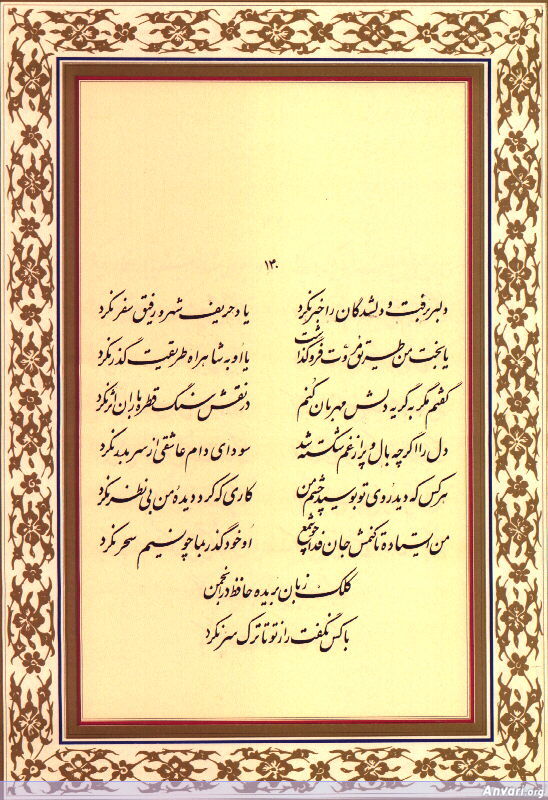 ۱۴۰
دلبر برفت و دلشدگان را خبر نکرد یاد حریف شهر و رفیق سفر نکرد
یا بخت من طریق مروّت فروگذاشت یا او به شاهراه طریقت گذر نکرد
گفتم مگر به گریه دلش مهربان کنم در نقش سنگ قطره باران اثر نکرد
دل را اگرچه بال و پر از غم شکسته شد سودای دام عاشقی از سر بدر نکرد
هرکس که دید روی تو بوسید چشم من کاری که کرد دیده من بی نظر نکرد
من ایستاده تا کنمش جان فدا چو شمع او خود گذر بما چو نسیم سحر نکرد
کلک زبان بریده حافظ در انجمن
با کس نگفت راز تو تا ترک سر نکرد
Anvari.org